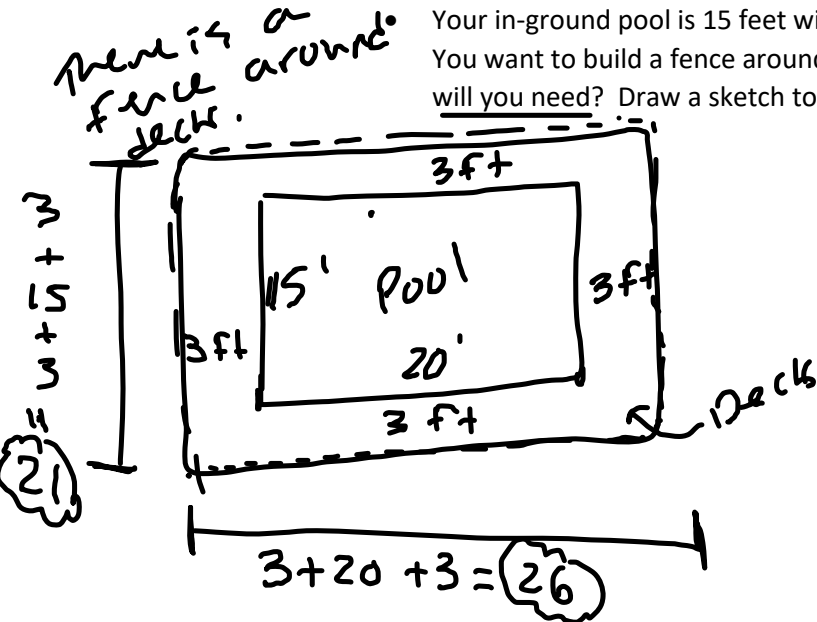 There is a
fence around
deck.
• Your in-ground pool is 15 feet wi
You want to build a fence around
will you need? Draw a sketch to
3 ft
15' Pool
20'
3 ft
3 ft
3 ft
Deck
3
+
15
+
3
=
21
3+20+3=26